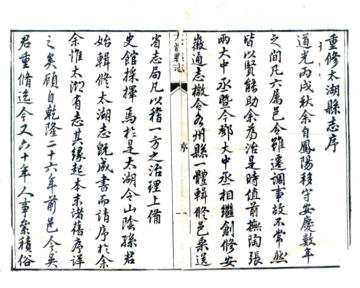 重修太湖縣志序
道光丙戌秋余自鳳陽移守安慶數年
之間凡六屬邑令雖遷調事故不常然
皆以賢能助余為治是時值前撫陶張
兩大中丞暨今鄧大中丞相繼創修安
徽通志檄令各州縣一體輯修邑乘送
省志局凡以稽一方之治理上備
史館採擇焉於是太湖令山陰孫君
始輯修太湖志既成書而請序於余
余惟太湖有志其緣起本末諸舊序詳
之矣顧自乾隆二十六年前邑令吳
君重脩迄今又六十年人事累積俗
序